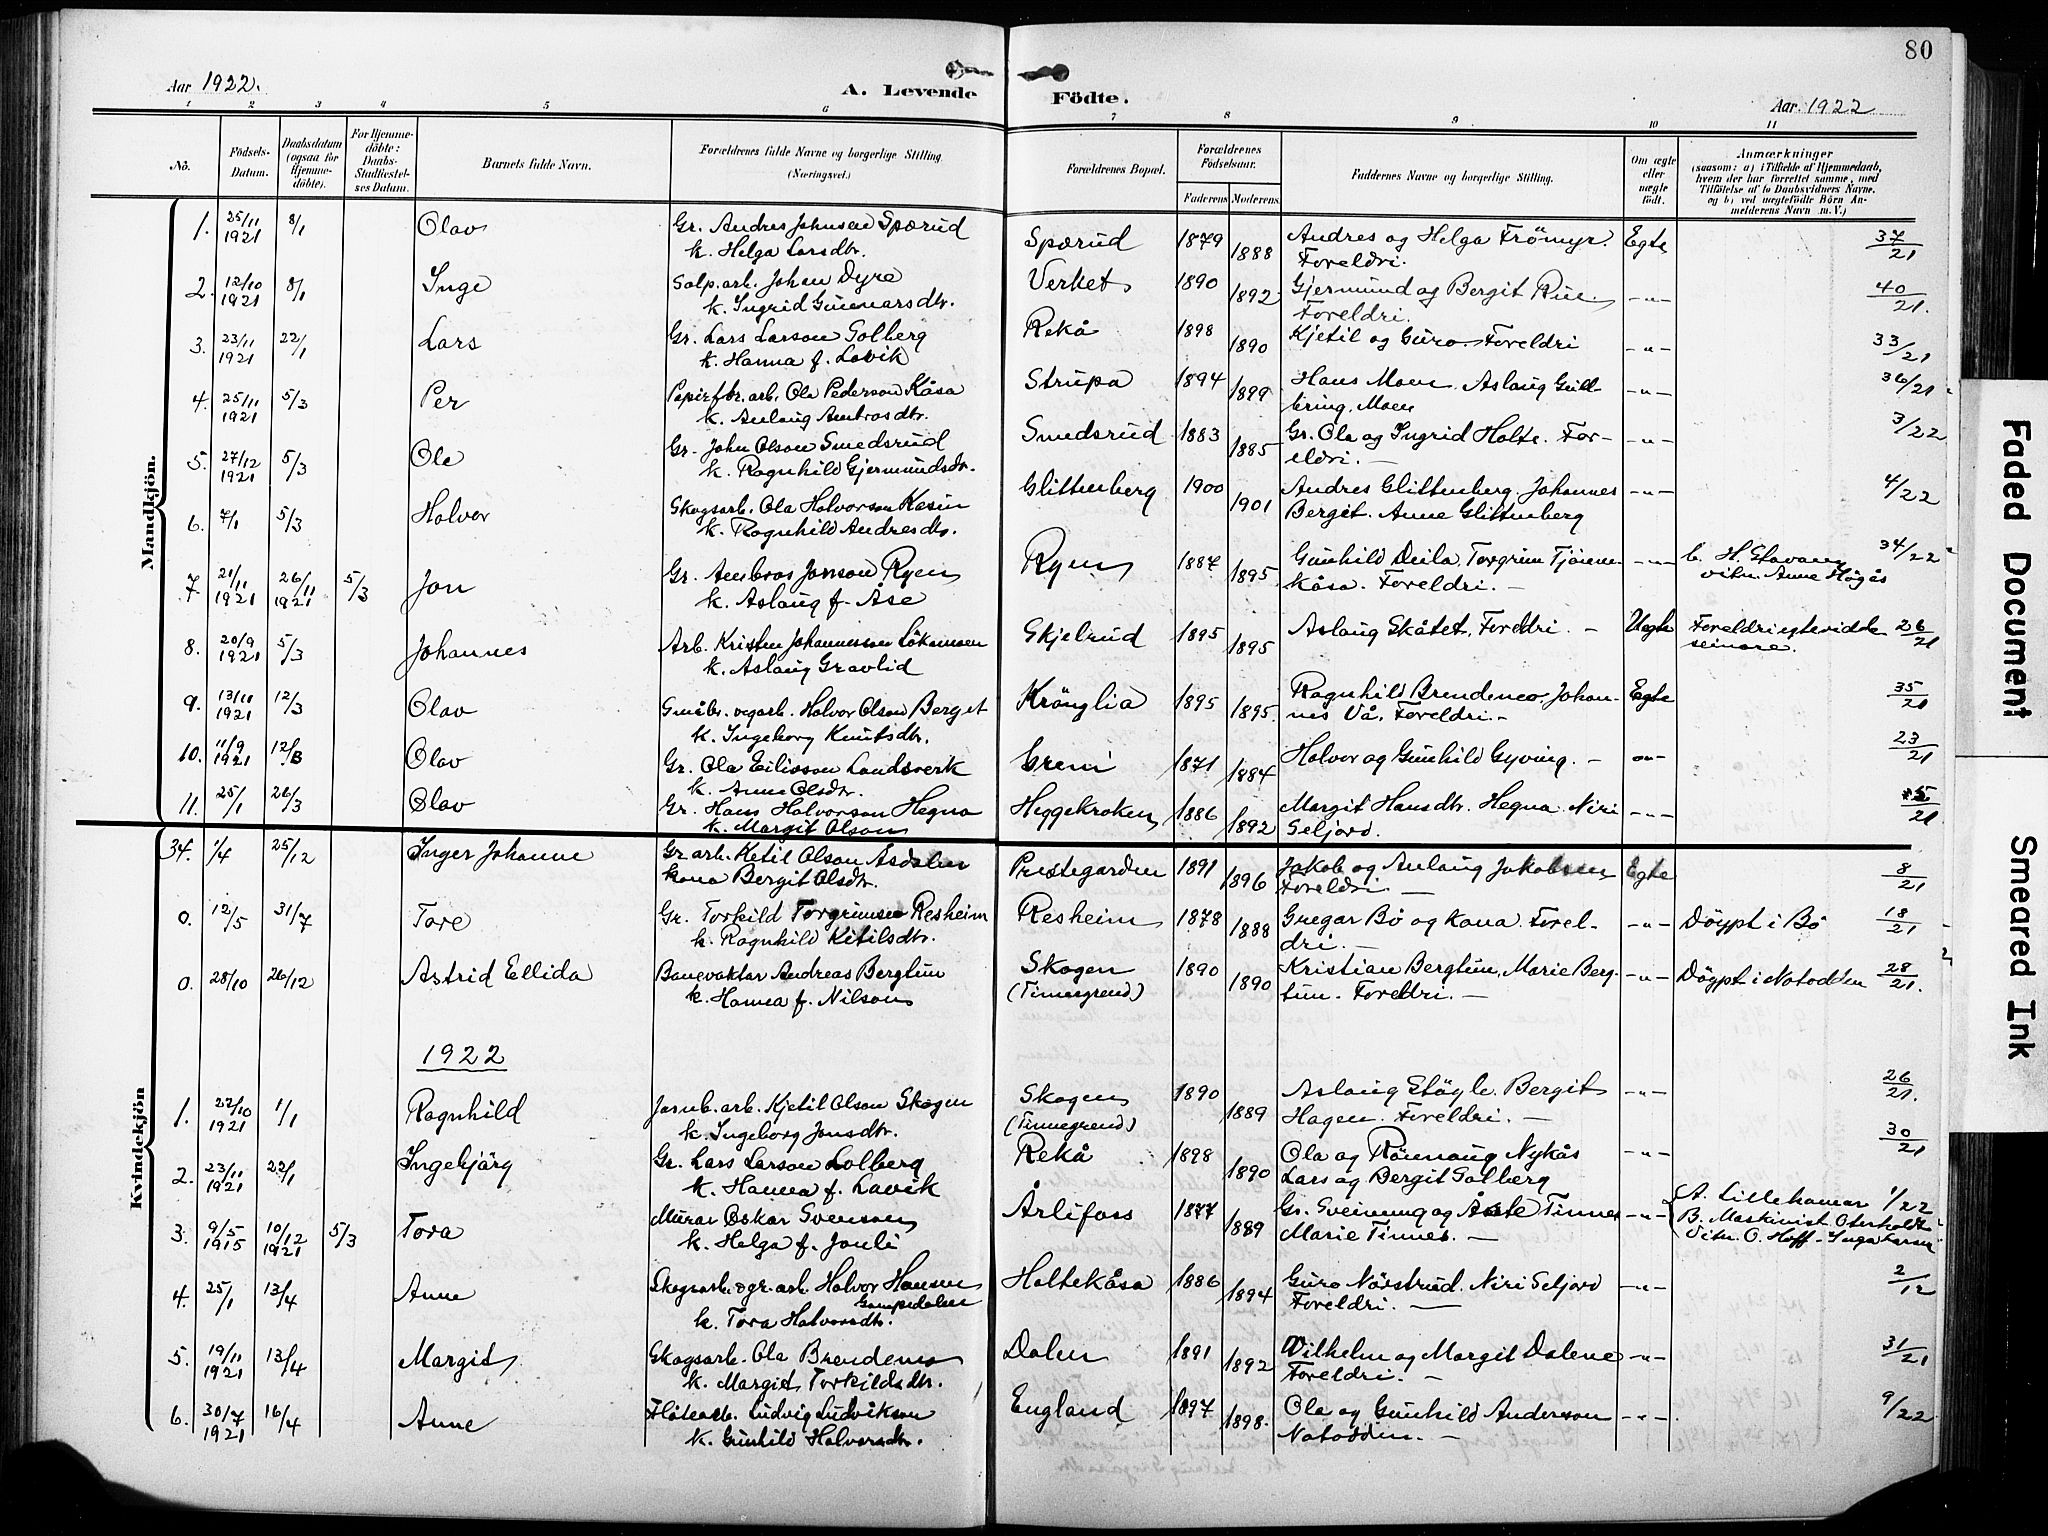 80
Aar 1922.
A. Levende Födte.
Aar 1922
1 2 3 4 5 6 7 8 9 10 11
No.
Födsels-Datum.
Daabsdatum (ogsaa for Hjemmedöbte).
For Hjemmedöbte: Daabs-Stadfæstelses Datum.
Barnets fulde Navn.
Forældrenes fulde Navne og borgerlige Stilling. (Næringsvei.)
Forældrenes Bopæl.
Forældrenes Födselsaar.
Faderens Moderens
Faddernes Navne og borgerlige Stilling.
Om ægte eller uægte födt.
Anmærkninger
(saasom: a) i Tilfælde af Hjemmedaab, hvem der har forrettet samme, med Tilföielse af to Daabsvidners Navne, og b) ved uægtefödte Börn Anmelderens Navn m. V.)
Mandkjön.
1. 25/11 1921 8/1 Olav Gr. Andres Johnsen Spærud Spærud 1879 1888 Andres og Helga Frömyr. Egte 37/21
k. Helga Larsdtr. Foreldri.
2. 12/10 1921 8/1 Inge Salp.arb. Johan Dyre Verket 1890 1892 Gjermund og Bergit Rue. -"- 40/21.
k. Ingrid Gunnarsdtr. Foreldri.
3. 23/11 1921 22/1 Lars Gr. Lars Larson Solberg Rekå 1898 1890 Kjetil og Guro. Foreldri -"- 33/21
k. Hanna f. Lavik
4. 25/11 1921 5/3 Per Papirfbr. arb. Ola Pederson Kåsa Strupa 1894 1899 Hans Moen. Aslaug Gull- -"- 36/21
k. Anlaug Ambrosdtr. bring. Moen
5. 27/12 1921 5/3 Ole Gr. John Olson Smedsrud Smedsrud 1883 1885 Gr. Ola og Ingrid Holte. For- -"- 3/22
k. Ragnhild Gjermundsdr. eldri. —
6. 7/1 5/3 Halvor Skogsarb. Ola Halvorson Kasin Glittenberg 1900 1901 Andres Glittenberg. Johannes -"- 4/22
k. Ragnhild Andresdtr. Bergit. Anne Glittenberg
7 21/11 1921 26/11 1921 5/3 Jon Gr. Ambros Jonson Ryen Ryen 1887 1895 Gunhild Deila, Torgrim Tjönn- -"- b. H. Stavan 34/22
k. Aslaug f. Åse kåsa. Foreldri. — vitn. Anne Högås
8. 20/9 1921 5/3 Johannes Arb. Kristen Johannesson Lökamoen Skjelrud 1895 1895 Aslaug Skåtet. Foreldri. — Uegte Foreldri egtevidde 26/21
k. Aslaug Gravlid seinare.
9. 13/11 1921 12/3 Olav Småbr. vegarb. Halvor Olson Berget Kränglia 1895 1895. Ragnhild Brendemo. Johan- Egte 35/21
k. Ingeborg Knutsdtr. nes Vå. Foreldri. —
10. 11/9 1921 12/3 Olav Gr. Ola Eilisson Landsverk Greni 1871 1884 Halvor og Gunhild Gyving. — -"- 23/21
k. Anne Olsdtr.
11. 25/1 26/3 Olav Gr. Hans Halvorson Hegna Heggekroken 1886 1892 Margit Hansdtr. Hegna. Niri -"- 5/21
k. Margit Olson Seljord.
Kvindekjön
34. 1/4 25/12 Inger Johanne Gr. arb. Ketil Olson Åsdalen Prestegarden 1891 1896 Jakob og Anlaug Jakobsen Egte 8/21
kona Bergit Olsdtr. Foreldri —
0. 12/5 31/7 Tore Gr. Torkild Torgrimsen Resheim Resheim 1878 1888 Gregar Bö og kona. Forel- -"- Döypt i Bö 18/21
k. Ragnhild Kitilsdtr. dri. —
0. 28/10 26/12 Astrid Ellida Banevaktar Andreas Berglun Skogen 1890 1890 Kristian Berglun, Marie Berg- -"- Döypt i Notodden 28/21.
k. Hanna f. Nilson (Tinnegrend) lun. Foreldri. —
1922
1. 22/10 1921 1/1 Ragnhild Jarnb. arb. Kjetil Olson Skogen Skogen 1890 1889 Aslaug Stöyle. Bergit -"- 26/21.
k. Ingeborg Jonsdtr. (Tinnegrend) Hagen. Foreldri. —
2. 23/11 1921 22/1 Ingebjörg Gr. Lars Larson Solberg Rekå 1898 1890 Ola og Rönnaug Nykås -"- 30/21
k. Hanna f. Lavik Lars og Bergit Solberg
3. 9/5 1915 10/12 1921 5/3 Tora Murar Oskar Svenson Årlifoss 1877 1889 Gr. Sveinung og Åste Tinnes -"- A. Lillehamar 1/22
k. Helga f. Jonli Marie Tinnes. — B. Maskinist Oterholdt
Vitn. O. Hoff - Inga Larsen
4. 25/1 13/4 Anne Skogsarb. og gr. arb. Halvor Hansen Holtekåsa 1886 1894 Guro Nörstrud. Niri Seljord -"- 2/12
Gampedalen
k. Tora Halvorsdtr. Foreldri. —
5. 19/11 1921 13/4 Margit Skogsarb. Ola Brendemo Dalen 1891 1892 Wilhelm og Margit Dalene -"- 31/21
k. Margit Torkildsdtr. Foreldri. —
6. 30/7 1921 16/4 Anne Flötearb. Ludvig Ludvikson England 1897 1898. Ola og Gunhild Anderson -"- 9/22
k. Gunhild Halvorsdtr. Notodden. —
Faded Document
Smeared Ink